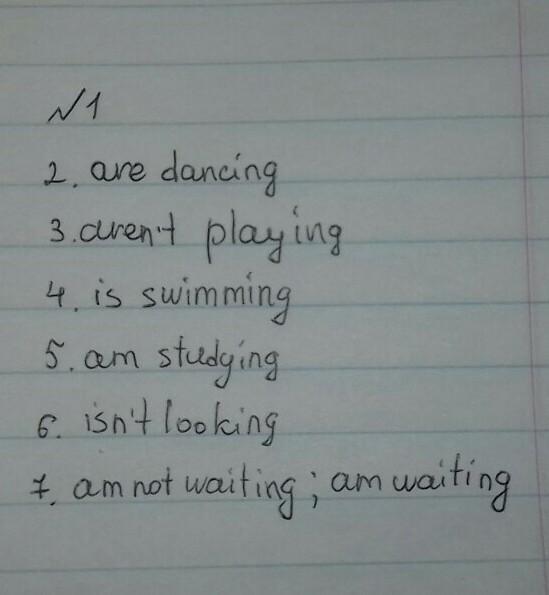 N1
2. are dancing
3. aren't playing
4. is swimming
5. am studying
6. isn't looking
7. am not waiting; am waiting